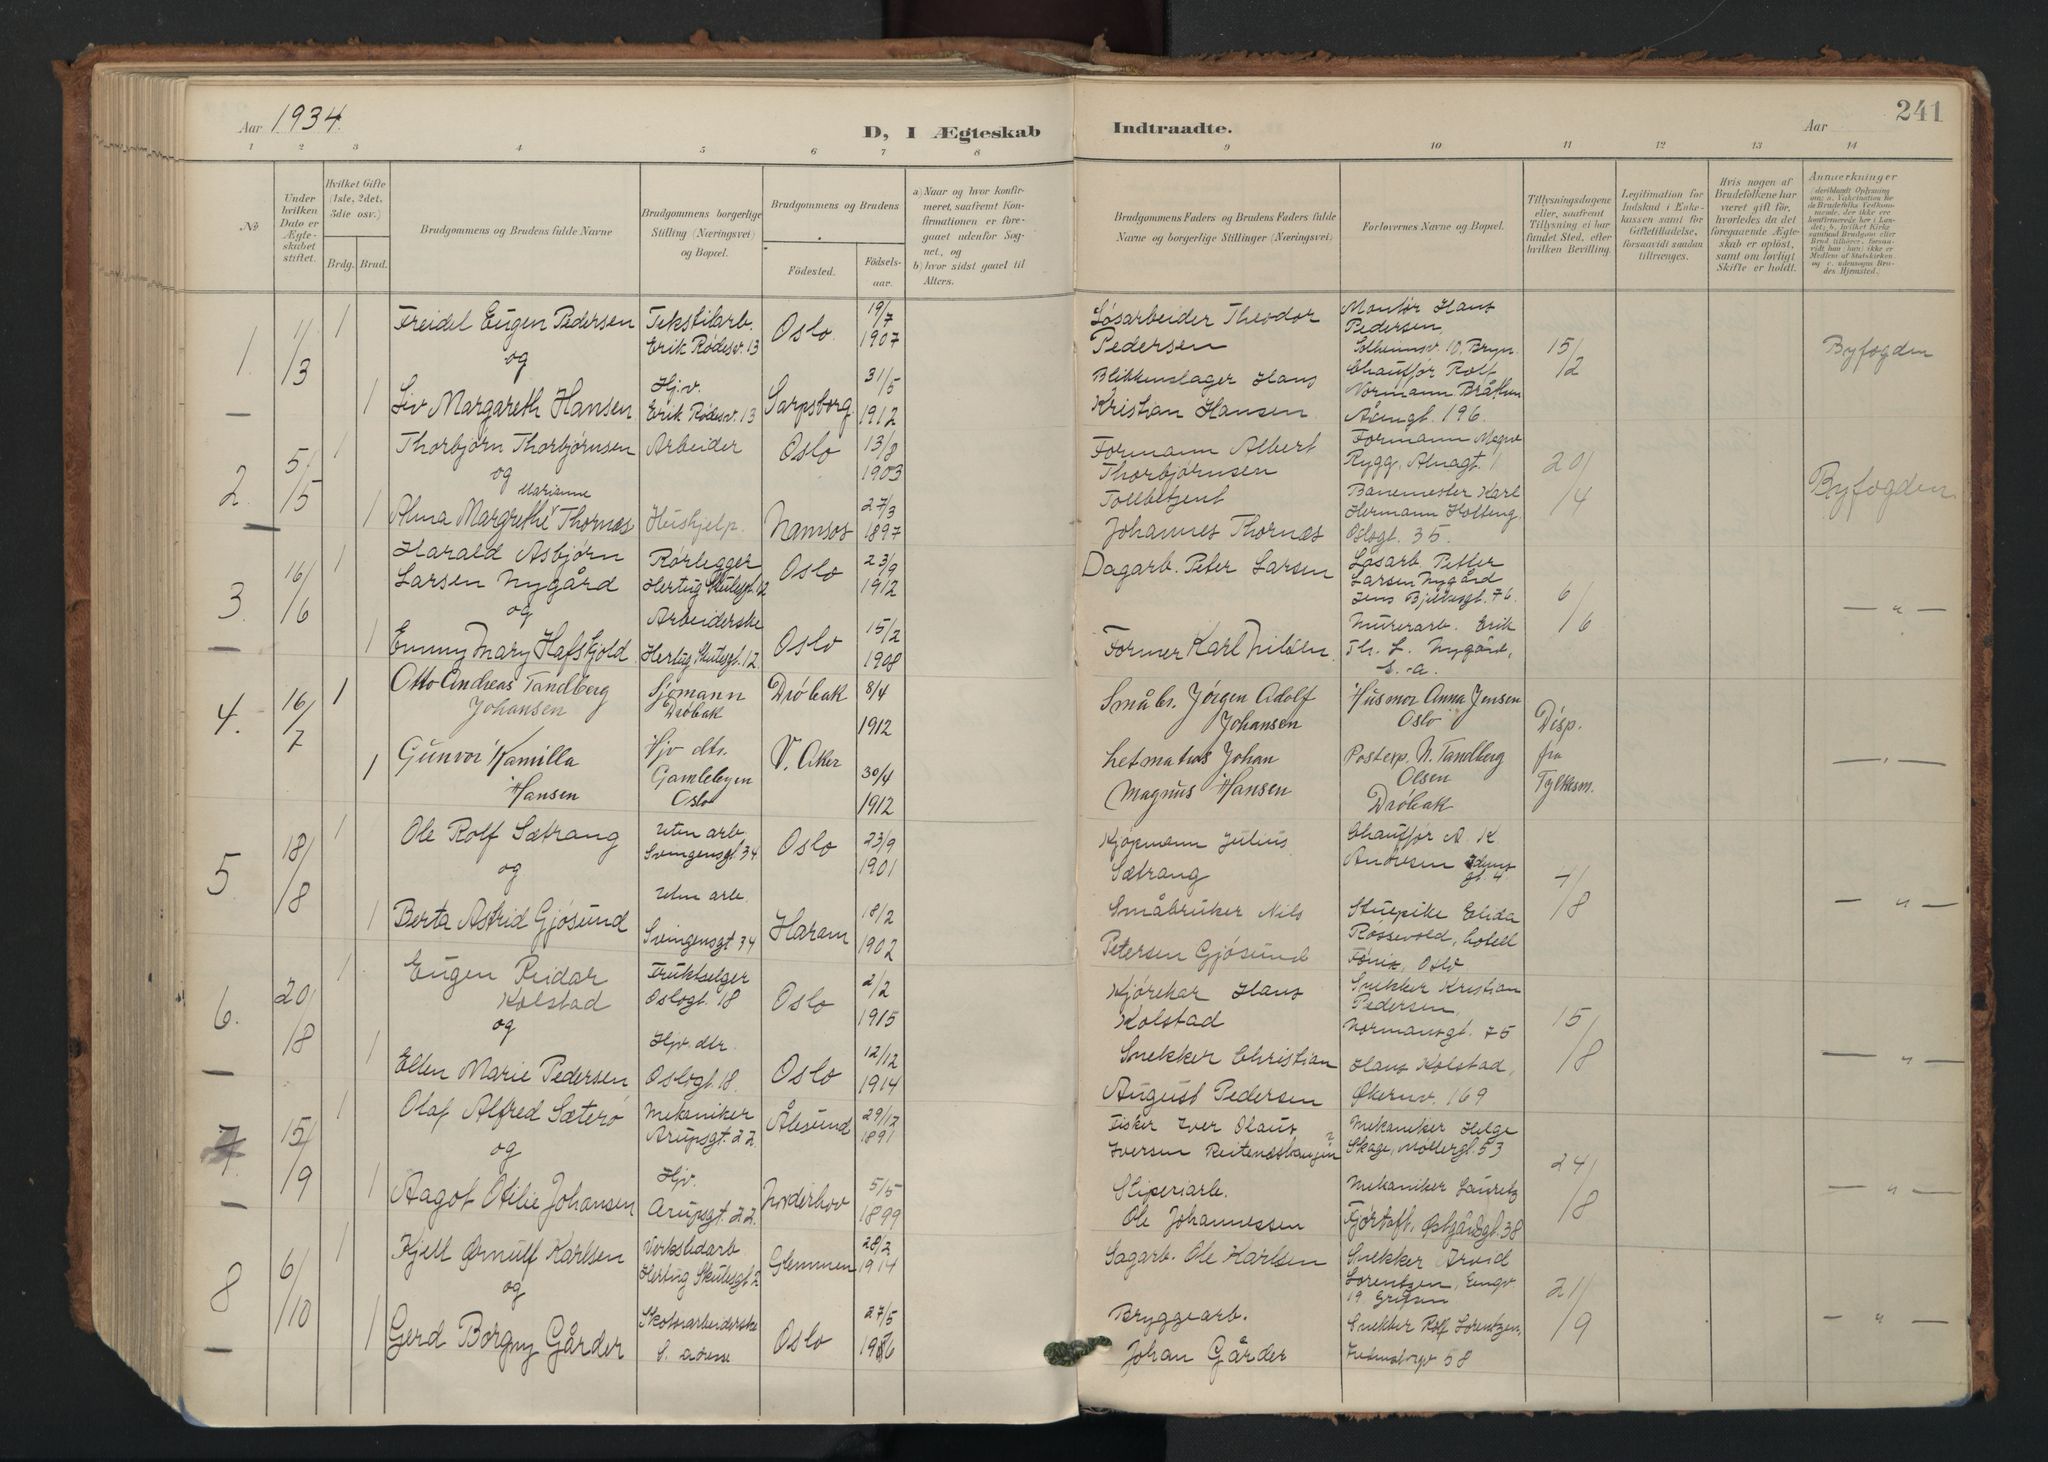 Aar 1934.
D, I Ægteskab
Indtraadte.
Aar
241
1 2 3 4 5 6 7 8 9 10 11 12 13 14
No
Under hvilken Dato er Ægteskabet stiftet.
Hvilket Gifte (1ste, 2det, 3die osv.)
Brdg. Brud.
Brudgommens og Brudens fulde Navne
Brudgommens borgerlige Stilling (Næringsvei) og Bopæl.
Brudgommens og Brudens
Födested.
Födselsaar.
a) Naar og hvor konfirmeret, saafremt Konfirmationen er foregaaet udenfor Sognet, og
b) hvor sidst gaaet til Alters.
Brudgommens Faders og Brudens Faders fulde Navne og borgerlige Stillinger (Næringsvei)
Forlovernes Navne og Bopæl.
Tillysningsdagene eller, saafremt Tillysning ei har fundet Sted, efter hvilken Bevilling.
Legitimation for Indskud i Enkekassen samt for Giftetilladelse, forsaavidt saadan tiltrænges.
Hvis nogen af Brudefolkene har været gift för, hvorledes da det foregaaende Ægteskab er oplöst, samt om lovligt Skifte er holdt.
Anmærkninger
1. 1/3 1
Freidel Eugen Pedersen
og
1 Liv Margareth Hansen
Tekstilarb.
Erik Rødesv. 13
Hjv.
Erik Rødesv. 13
Oslo.
Sarpsborg.
19/7 1907
31/5 1912
Løsarbeider Theodor
Pedersen
Blikkenslager Hans
Kristian Hansen
Montør Hans
Pedersen,
Solheimsv. 10, Bryn.
Chauffør Rolf
Normann Bråthen
Åsengt. 196.
15/2
Byfogden
2. 5/5 1
Thorbjørn Thorbjørnsen
og
Marianne
1 Alma Margrethe Thornæs
Arbeider
Hushjelp.
Oslo
Namsos
13/8 1903
27/3 1897
Formann Albert
Thorbjørnsen
Tollbetjent
Johannes Thornæs
Formann Magne
Rygg, Alnagt. 1
Banemester Karl
Hermann Holteng.
Oslogt. 35.
20/4
Byfogden
3. 16/6 1
Harald Asbjørn
Larsen Nygård
og
1 Emmy Mary Hafskjold
Rørlegger
Hertug Skulesgt. 12
Arbeiderske
Hertug Skulesgt. 12.
Oslo
Oslo
23/9 1912
15/2 1908
Dagarb. Peter Larsen
Former Karl Nilsen.
Løsarb. Petter
Larsen Nygård
Jens Bjelkesgt. 76.
Murerarb. Erik
Th. L. Nygård,
E. a.
6/6
— " —
4. 16/7 1
Otto Andreas Tandberg
Johansen
1 Gunvor Kamilla
Hansen
Sjømann
Drøbak
Hjv dtr.
Gamlebyen
Oslo
Drøbak
V. Aker
8/4 1912
30/4 1912
Småbr. Jørgen Adolf
Johansen
Letmatros Johan
Magnus Hansen
Husmor Anna Jensen
Oslo
Postexp. N. Tandberg
Olsen
Drøbak
Disp.
fra
Fylkesm.
— " —
5. 18/8 1
Ole Rolf Sætrang
og
1 Berta Astrid Gjøsund
Uten arb.
Svingensgt. 34
Uten arb.
Svingensgt 34
Oslo
Haram
23/9 1901
18/2 1902
Kjøpmann Julius
Sætrang
Småbruker Nils
Petersen Gjøsund
Chauffør A. K.
Andresen
Stuepike Elida
Røssevold, hotell
Fønix, Oslo
7/8
— " —
6. 20/8 1
Eugen Reidar
Kolstad
og
1 Ellen Marie Pedersen
Fruktselger
Oslogt. 18
Hjv. dtr.
Oslogt. 18.
Oslo
Oslo
2/2 1915
12/12 1914
Kjørekar Hans
Kolstad
Snekker Christian
August Pedersen
Snekker Kristian
Pedersen,
Normansgt. 75
Hans Kolstad,
Økernv. 169
15/8
— " —
7. 15/9 1
Olaf Alfred Sæterø
og
1 Aagot Otilie Johansen
Mekaniker
Arupsgt. 22
Hjv.
Arupsgt. 22.
Ålesund
Norderhov
29/12 1891
5/5 1899
Fisker Iver Olaus
Iversen Reitenæshaugen
Sliperiarb.
Ole Johannessen
Mekaniker Helge
Skage, Møllergt. 53
Mekaniker Lauritz
Fjørtoft, Østgårdsgt. 38
24/8
— " —
8 6/10 1
Kjell Ørnulf Karlsen
og
1 Gerd Borgny Gårder
Verkstedarb.
Hertug Skulesgt 2
Skotøiarbeiderske
S. adresse
Glemmen
Oslo
28/2 1914
27/5 1916
Sagarb. Ole Karlsen
Bryggearb.
Johan Gårder
Snekker Arvid
Lorentzen, Engv.
19, Grefsen
Snekker Rolf Lorentzen,
58
21/9
— " —